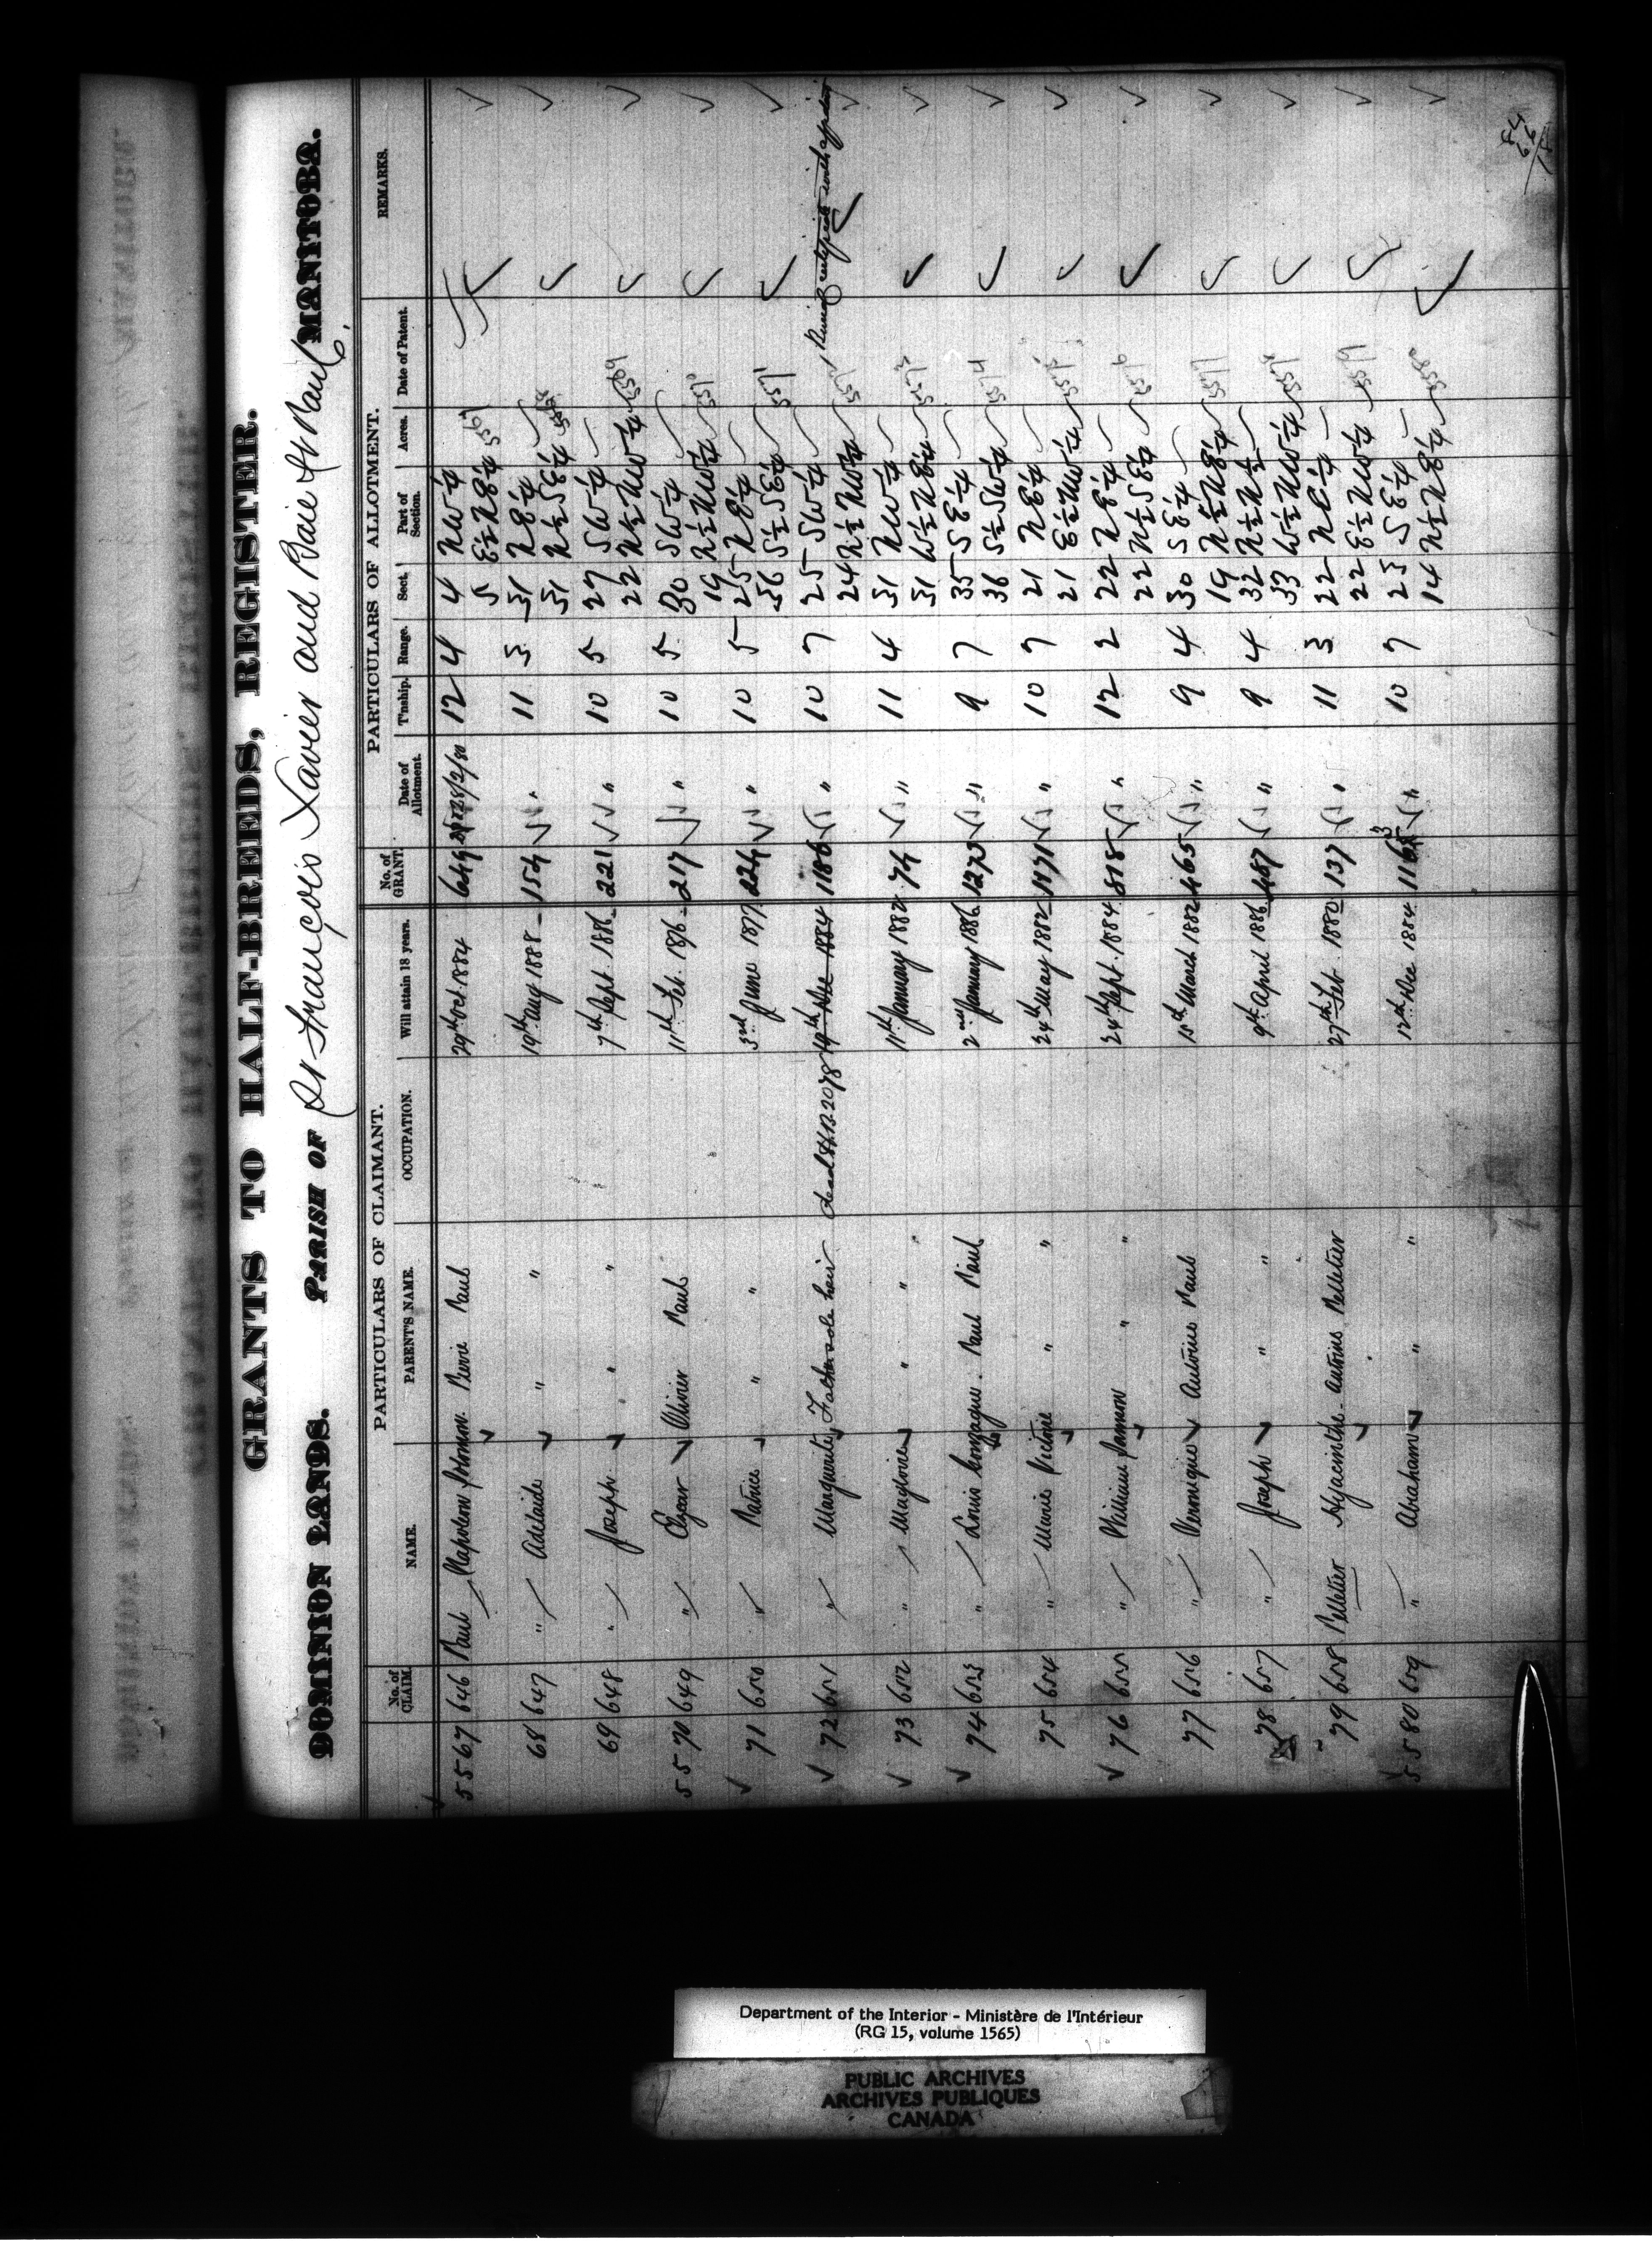 GRANTS TO HALF-BREEDS, REGISTER.
DOMINION LANDS. PARISH OF St François Xavier and Baie St Paul, MANITOBA.
PARTICULARS OF CLAIMANT. PARTICULARS OF ALLOTMENT.
No. of CLAIM. NAME. PARENT'S NAME. OCCUPATION. Will attain 18 years. No. of GRANT. Date of Allotment. T'nship. Range. Sect. Part of Section. Acres. Date of Patent. REMARKS.
5567 646 Paul Napoleon Solomon Pierre Paul 29th Oct. 1884 649 28/2/80 12 4 4 NW¼
5 E½ NE¼ 5567
68 647 " Adelaide " " 19th Aug 1888 154 " 11 3 31 NE¼
31 N½ SE¼
69 648 " Joseph " " 7th Sept. 1886 221 " 10 5 27 SW¼
22 N½ NW¼ 5569
5570 649 " Elzear Olivier Paul 11th Feb. 1876 217 " 10 5 30 SW¼
19 N½ NW¼ 5570
71 650 " Patrice " " 3rd June 1877 224 " 10 5 25 NE¼
36 S½ SE¼ 5571
72 651 " Marguerite Father sole heir dead H.B. 2078 19th Dec 1884 1186 " 10 7 25 SW¼
24 N½ NW¼
73 652 " Magloire " " 11th January 1882 74 " 11 4 31 NW¼
31 W½ NE¼ 5573
74 653 " Louis Gonzague Paul Paul 2nd January 1886 1273 " 9 7 35 SE¼
36 S½ SW¼ 5574
75 654 " Marie Victoire " " 24th May 1882 1171 " 10 7 21 NE¼
21 E½ NW¼ 5575
76 655 " William " " 24th Sept. 1884 818 " 12 2 22 NE¼
22 N½ SE¼ 5576
77 656 " Veronique Antoine Paul 15th March 1882 465 " 9 4 30 SE¼
19 N½ NE¼ 5577
78 657 " Joseph " " 9th April 1886 487 " 9 4 32 N½ N½
33 W½ NW¼ 5578
79 658 Pelletier Hyacinthe Antoine Pelletier 27th Feb. 1880 137 " 11 3 22 NE¼
22 E½ NW¼ 5579
5580 659 " Abraham " " 12th Dec 1884 1163 " 10 7 23 SE¼
14 N½ NE¼ 5580
Department of the Interior - Ministère de l'Intérieur
(RG 15, volume 1565)
PUBLIC ARCHIVES
ARCHIVES PUBLIQUES
CANADA